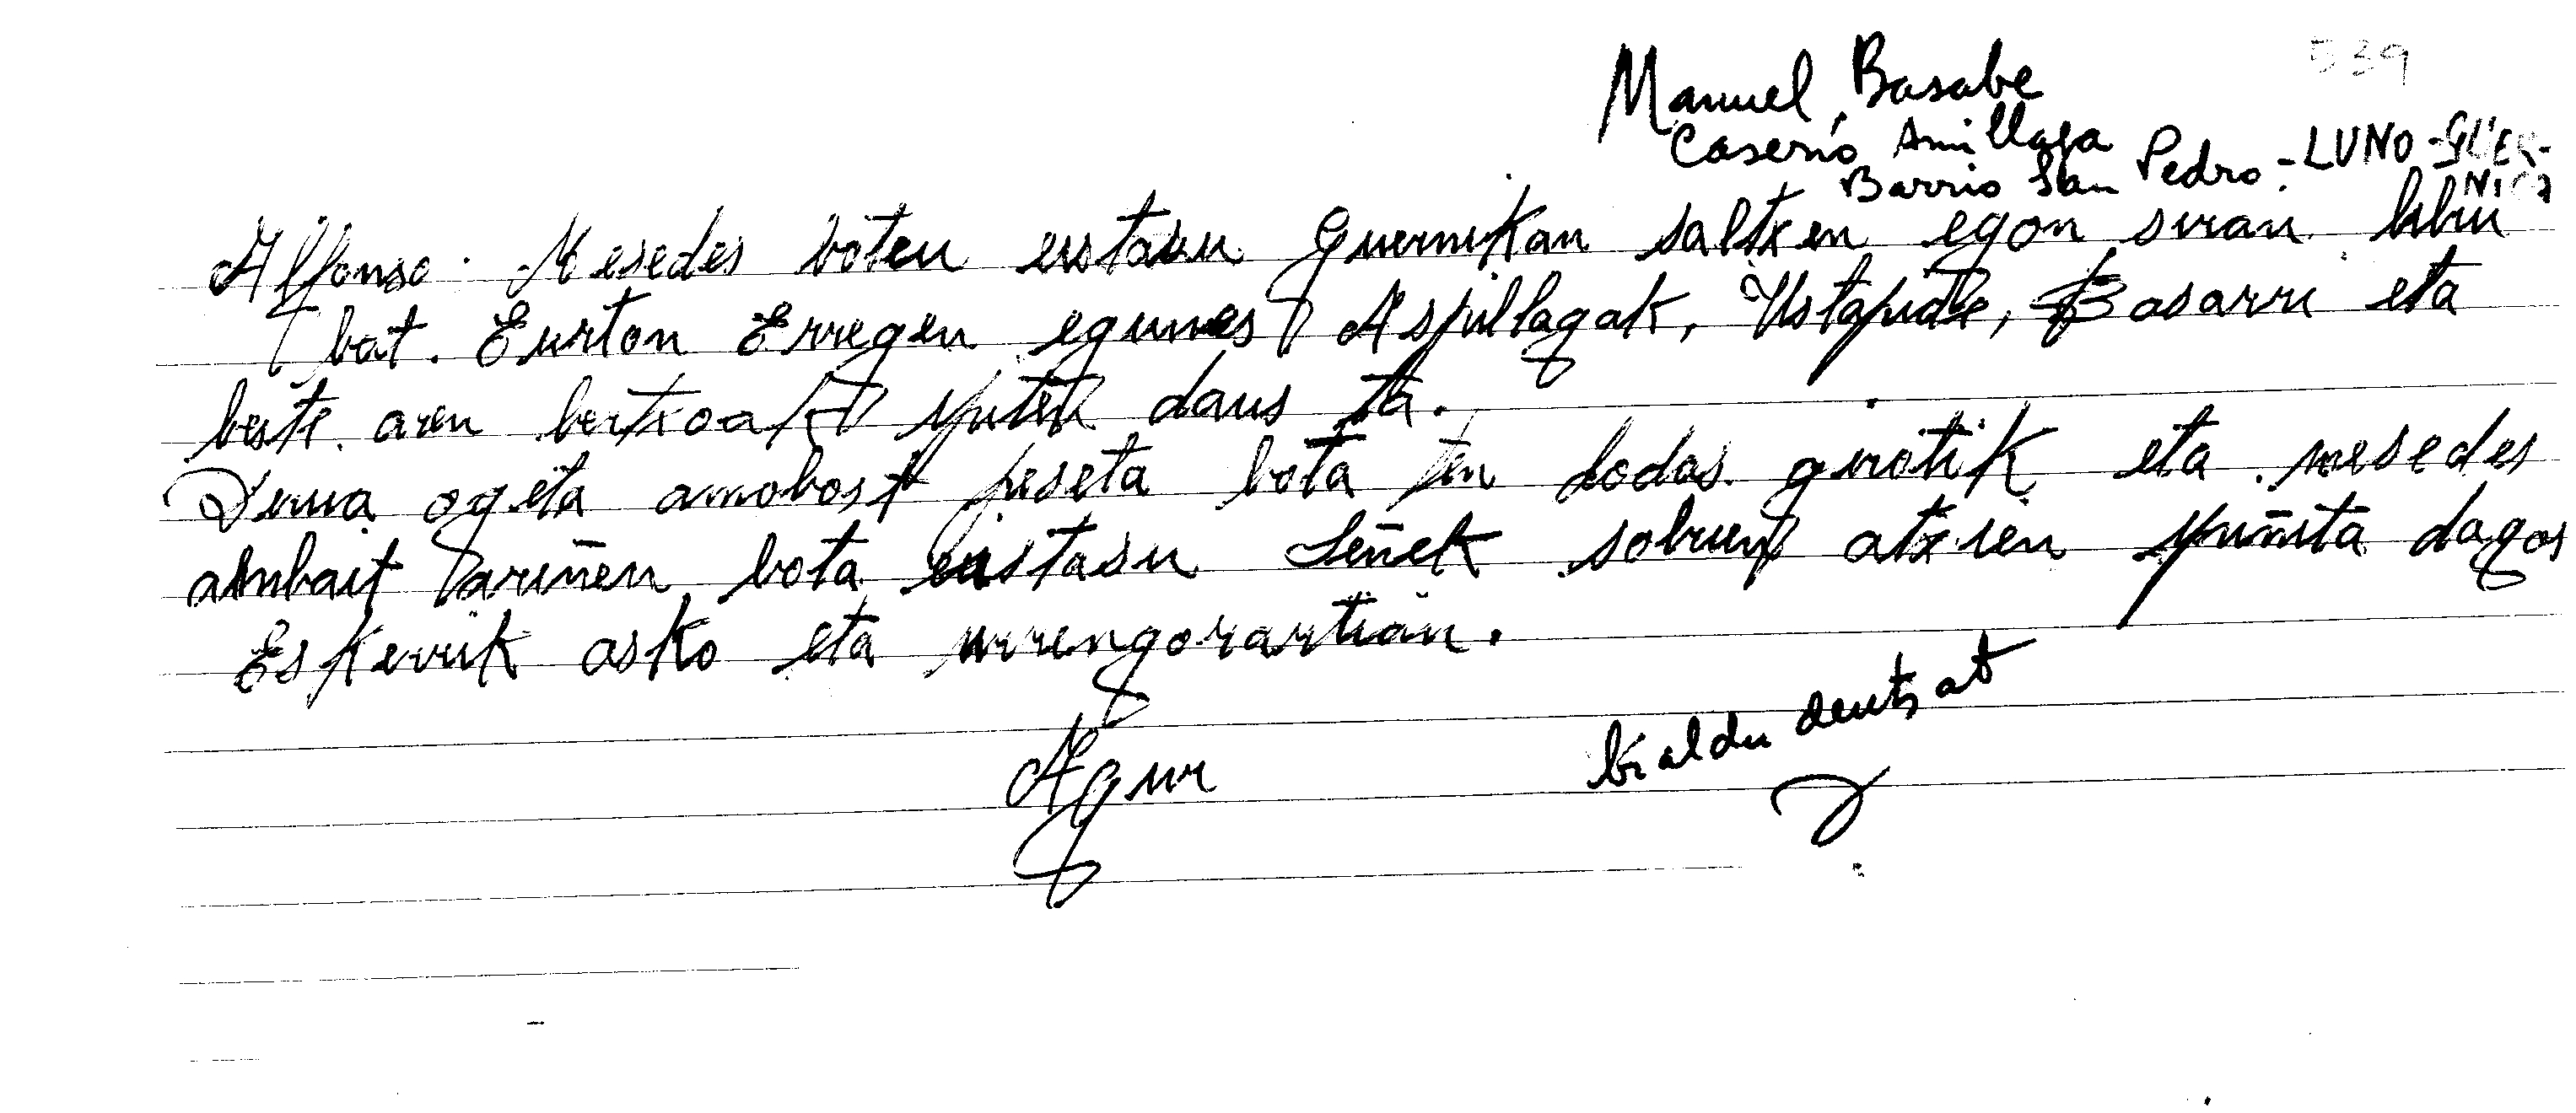 539
Manuel Basabe
Caserío Amillaga
Barrio San Pedro - LUNO - GUER-
NICA
Alfonso. Mesedes boteu eustasu Guernikan saltxen egon siran libru
bat. Eurton Erregen egunes Aspillagak, Ustapide, Basarri eta
beste aren bertxoak ipiték daus ta.
Dirua ogeta amabost peseta bota ten dodas girotik eta mesedes
alnbait ariñen bota eustasu Señek sobrun atxien ipiñita dagos
Eskerrik asko eta urrengorartian.
Agur
bialdu deutsat